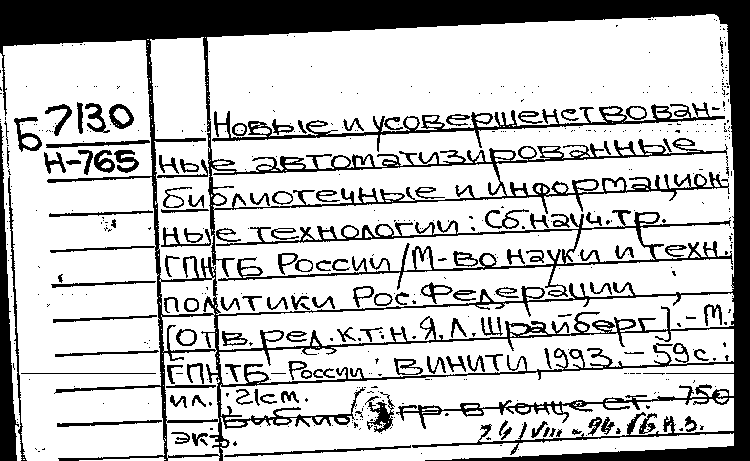 Б 7130
Н-765
Новые и усовершенствован-
ные автоматизированные
библиотечные и информацион-
ные технологии: Сб. науч. тр.
ГПНТБ России / М-во науки и техн.
политики Рос. Федерации ;
[Отв. ред. к.т.н. Я.Л. Шрайберг]. - М.:
ГПНТБ России: ВИНИТИ, 1993. - 59 с.:
ил.; 21 см.
Библиогр. в конце ст. - 750
экз.
VIII - 94.